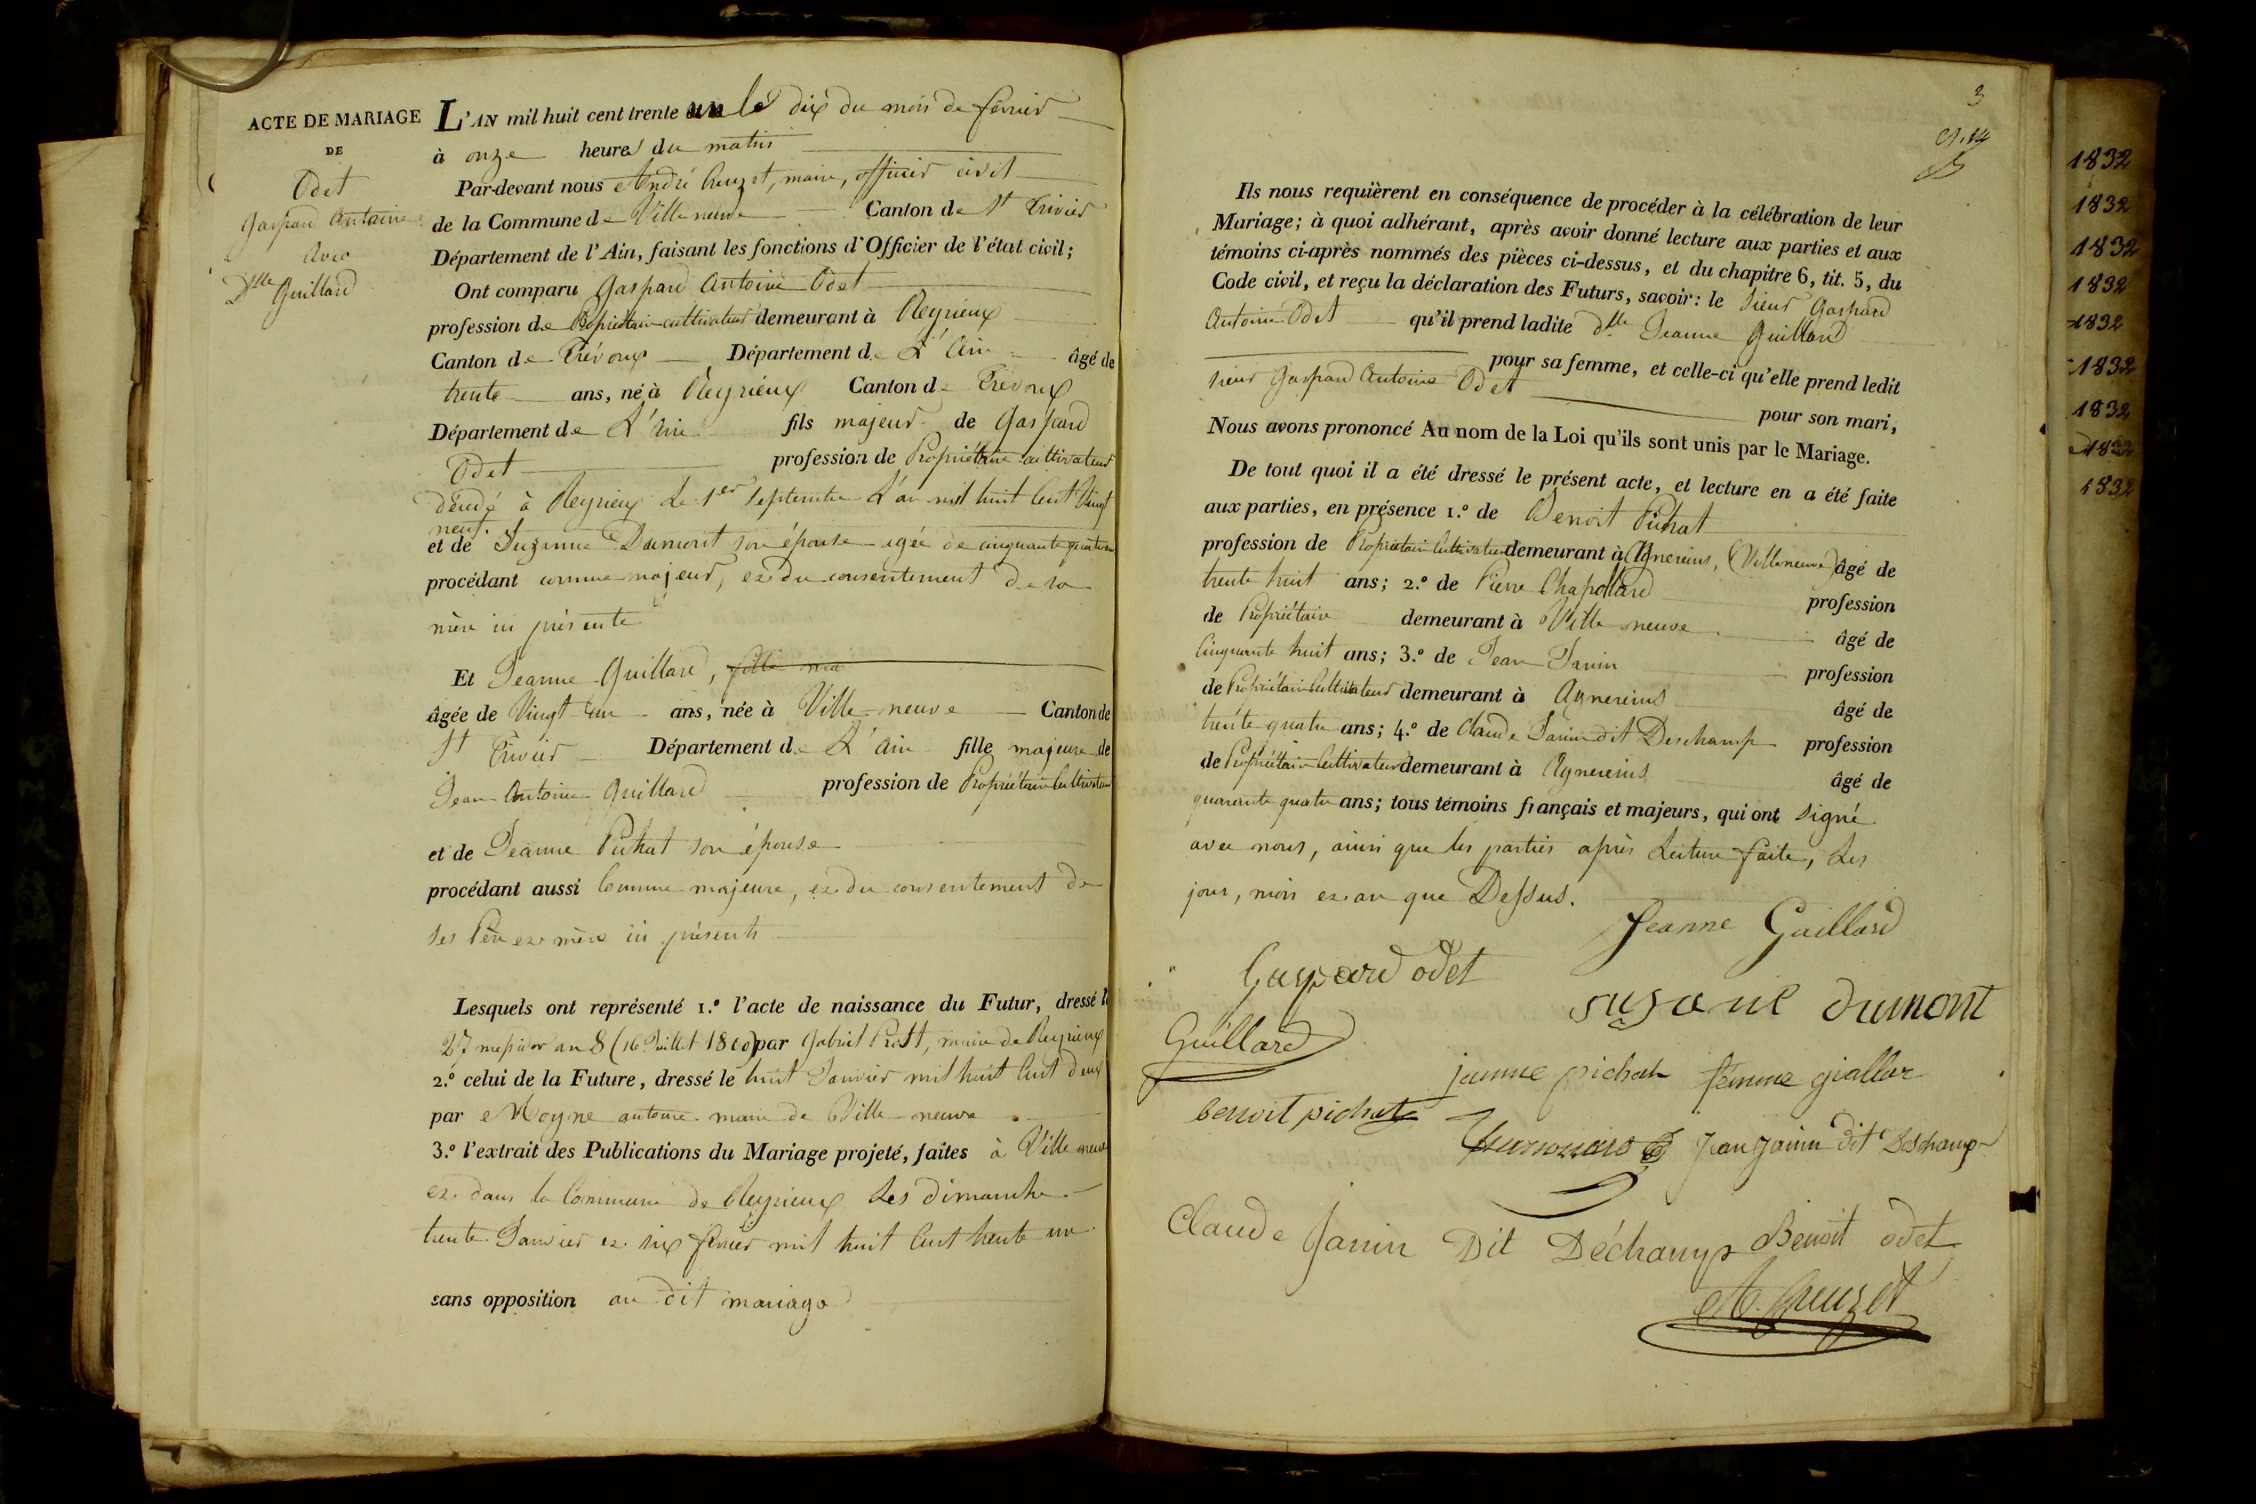 ACTE DE MARIAGE
DE
Odet
Gaspard Antoine
Avec
Dlle Guillard
L'AN mil huit cent trente un le dix du mois de février
à onze heures du matin
Par-devant nous André Creuzet, maire, officier civil
de la Commune de Ville neuve Canton de St Trivier
Département de l'Ain, faisant les fonctions d'Officier de l'état civil;
Ont comparu Gaspard Antoine Odet
profession de Propriétaire cultivateur demeurant à Reyrieux
Canton de Trévoux Département de L'Ain âgé de
trente ans, né à Reyrieux Canton de Trévoux
Département de L'Ain fils majeur de Gaspard
Odet profession de Propriétaire cultivateur
décédé à Reyrieux Le 1er septembre L'an mil huit Cent Vingt
neuf.
et de Suzanne Dumont son épouse agée de cinquante quatre
procédant comme majeur, et du consentement de sa
mère ici présente
Et Jeanne Guillard, fille ma
âgée de Vingt un ans, née à Ville neuve Canton de
St Trivier Département de L'Ain fille majeure de
Jean Antoine Guillard profession de Propriétaire Cultivateur
et de Jeanne Pichat son épouse
procédant aussi Comme majeure, et du consentement de
ses Père et mère ici présents
Lesquels ont représenté 1.º l'acte de naissance du Futur, dressé le
27 messidor an 8 (16 Juillet 1800) par Gabriel Prost, maire de Reyrieux
2.º celui de la Future, dressé le huit Janvier mil huit Cent deux
par Moyne antoine maire de Ville neuve
3.º l'extrait des Publications du Mariage projeté, faites à Ville neuve
et dans la Commune de Reyrieux Les dimanche
trente Janvier et six février mil huit Cent trente un
sans opposition au dit mariage
3
Ils nous requièrent en conséquence de procéder à la célébration de leur
Mariage; à quoi adhérant, après avoir donné lecture aux parties et aux
témoins ci-après nommés des pièces ci-dessus, et du chapitre 6, tit. 5, du
Code civil, et reçu la déclaration des Futurs, savoir: le Sieur Gaspard
Antoine Odet qu'il prend ladite dlle Jeanne Guillard
pour sa femme, et celle-ci qu'elle prend ledit
sieur Gaspard Antoine Odet pour son mari,
Nous avons prononcé Au nom de la Loi qu'ils sont unis par le Mariage.
De tout quoi il a été dressé le présent acte, et lecture en a été faite
aux parties, en présence 1.º de Benoit Pichat
profession de Propriétaire Cultivateur demeurant à Agnereins, (Villeneuve) âgé de
trente huit ans; 2.º de Pierre Chapollard profession
de Propriétaire demeurant à Ville neuve âgé de
Cinquante huit ans; 3.º de Jean Janin profession
de Propriétaire Cultivateur demeurant à Agnereins âgé de
trente quatre ans; 4.º de Claude Janin dit Deschamp profession
de Propriétaire Cultivateur demeurant à Agnereins âgé de
quarante quatre ans; tous témoins français et majeurs, qui ont signé
avec nous, ainsi que les parties après Lecture faite, Les
jour, mois et an que Dessus.
Jeanne Guillard
Gaspard odet
suzane dumont
Guillard
jeanne pichat femme giallar
benoit pichat
Jean janin dit Deschamp
Claude Janin Dit Déchamp Benoit odet
A. Creuzet
1832
1832
1832
1832
1832
1832
1832
1832
1832